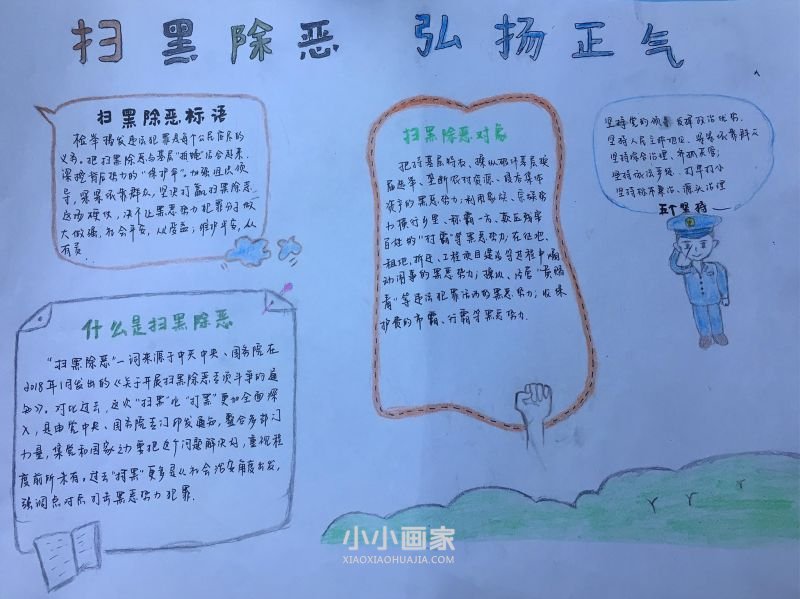 扫黑除恶 弘扬正气
扫黑除恶标语
检举揭发违法犯罪是每个公民应尽的
义务。把扫黑除恶与基层"拍蝇"结合起来,
深挖背后势力的"保护伞"。加强组织领
导,紧紧依靠群众,坚决打赢扫黑除恶
这场硬仗,决不让黑恶势力犯罪分子做
大做强,社会平安,人人受益;维护平安,人人
有责
什么是扫黑除恶
"扫黑除恶"一词来源于中共中央、国务院在
2018年1月发出的《关于开展扫黑除恶专项斗争的通
知》。对比过去,这次"扫黑"比"打黑"更加全面深
入,是由党中央、国务院专门印发通知,整合多部门
力量,集党和国家之力要把这个问题解决好,重视程
度前所未有。过去"打黑"更多是从社会治安角度出发,
强调点对点打击黑恶势力犯罪.
扫黑除恶对象
把持基层政权、操纵破坏基层换
届选举、垄断农村资源、侵吞集体
资产的黑恶势力;利用家族、宗族势
力横行乡里、称霸一方、欺压残害
百姓的"村霸"等黑恶势力;在征地、
租地、拆迁、工程项目建设等过程中煽
动闹事的黑恶势力;操纵、经营"黄赌
毒"等违法犯罪活动的黑恶势力;收保
护费的市霸、行霸等黑恶势力.
坚持党的领导、发挥政治优势.
坚持人民主体地位、紧紧依靠群众
坚持综合治理、齐抓共管;
坚持依法严惩、打早打小
坚持标本兼治、源头治理
五个坚持
小小画家
XIAOXIAOHUAJIA.COM